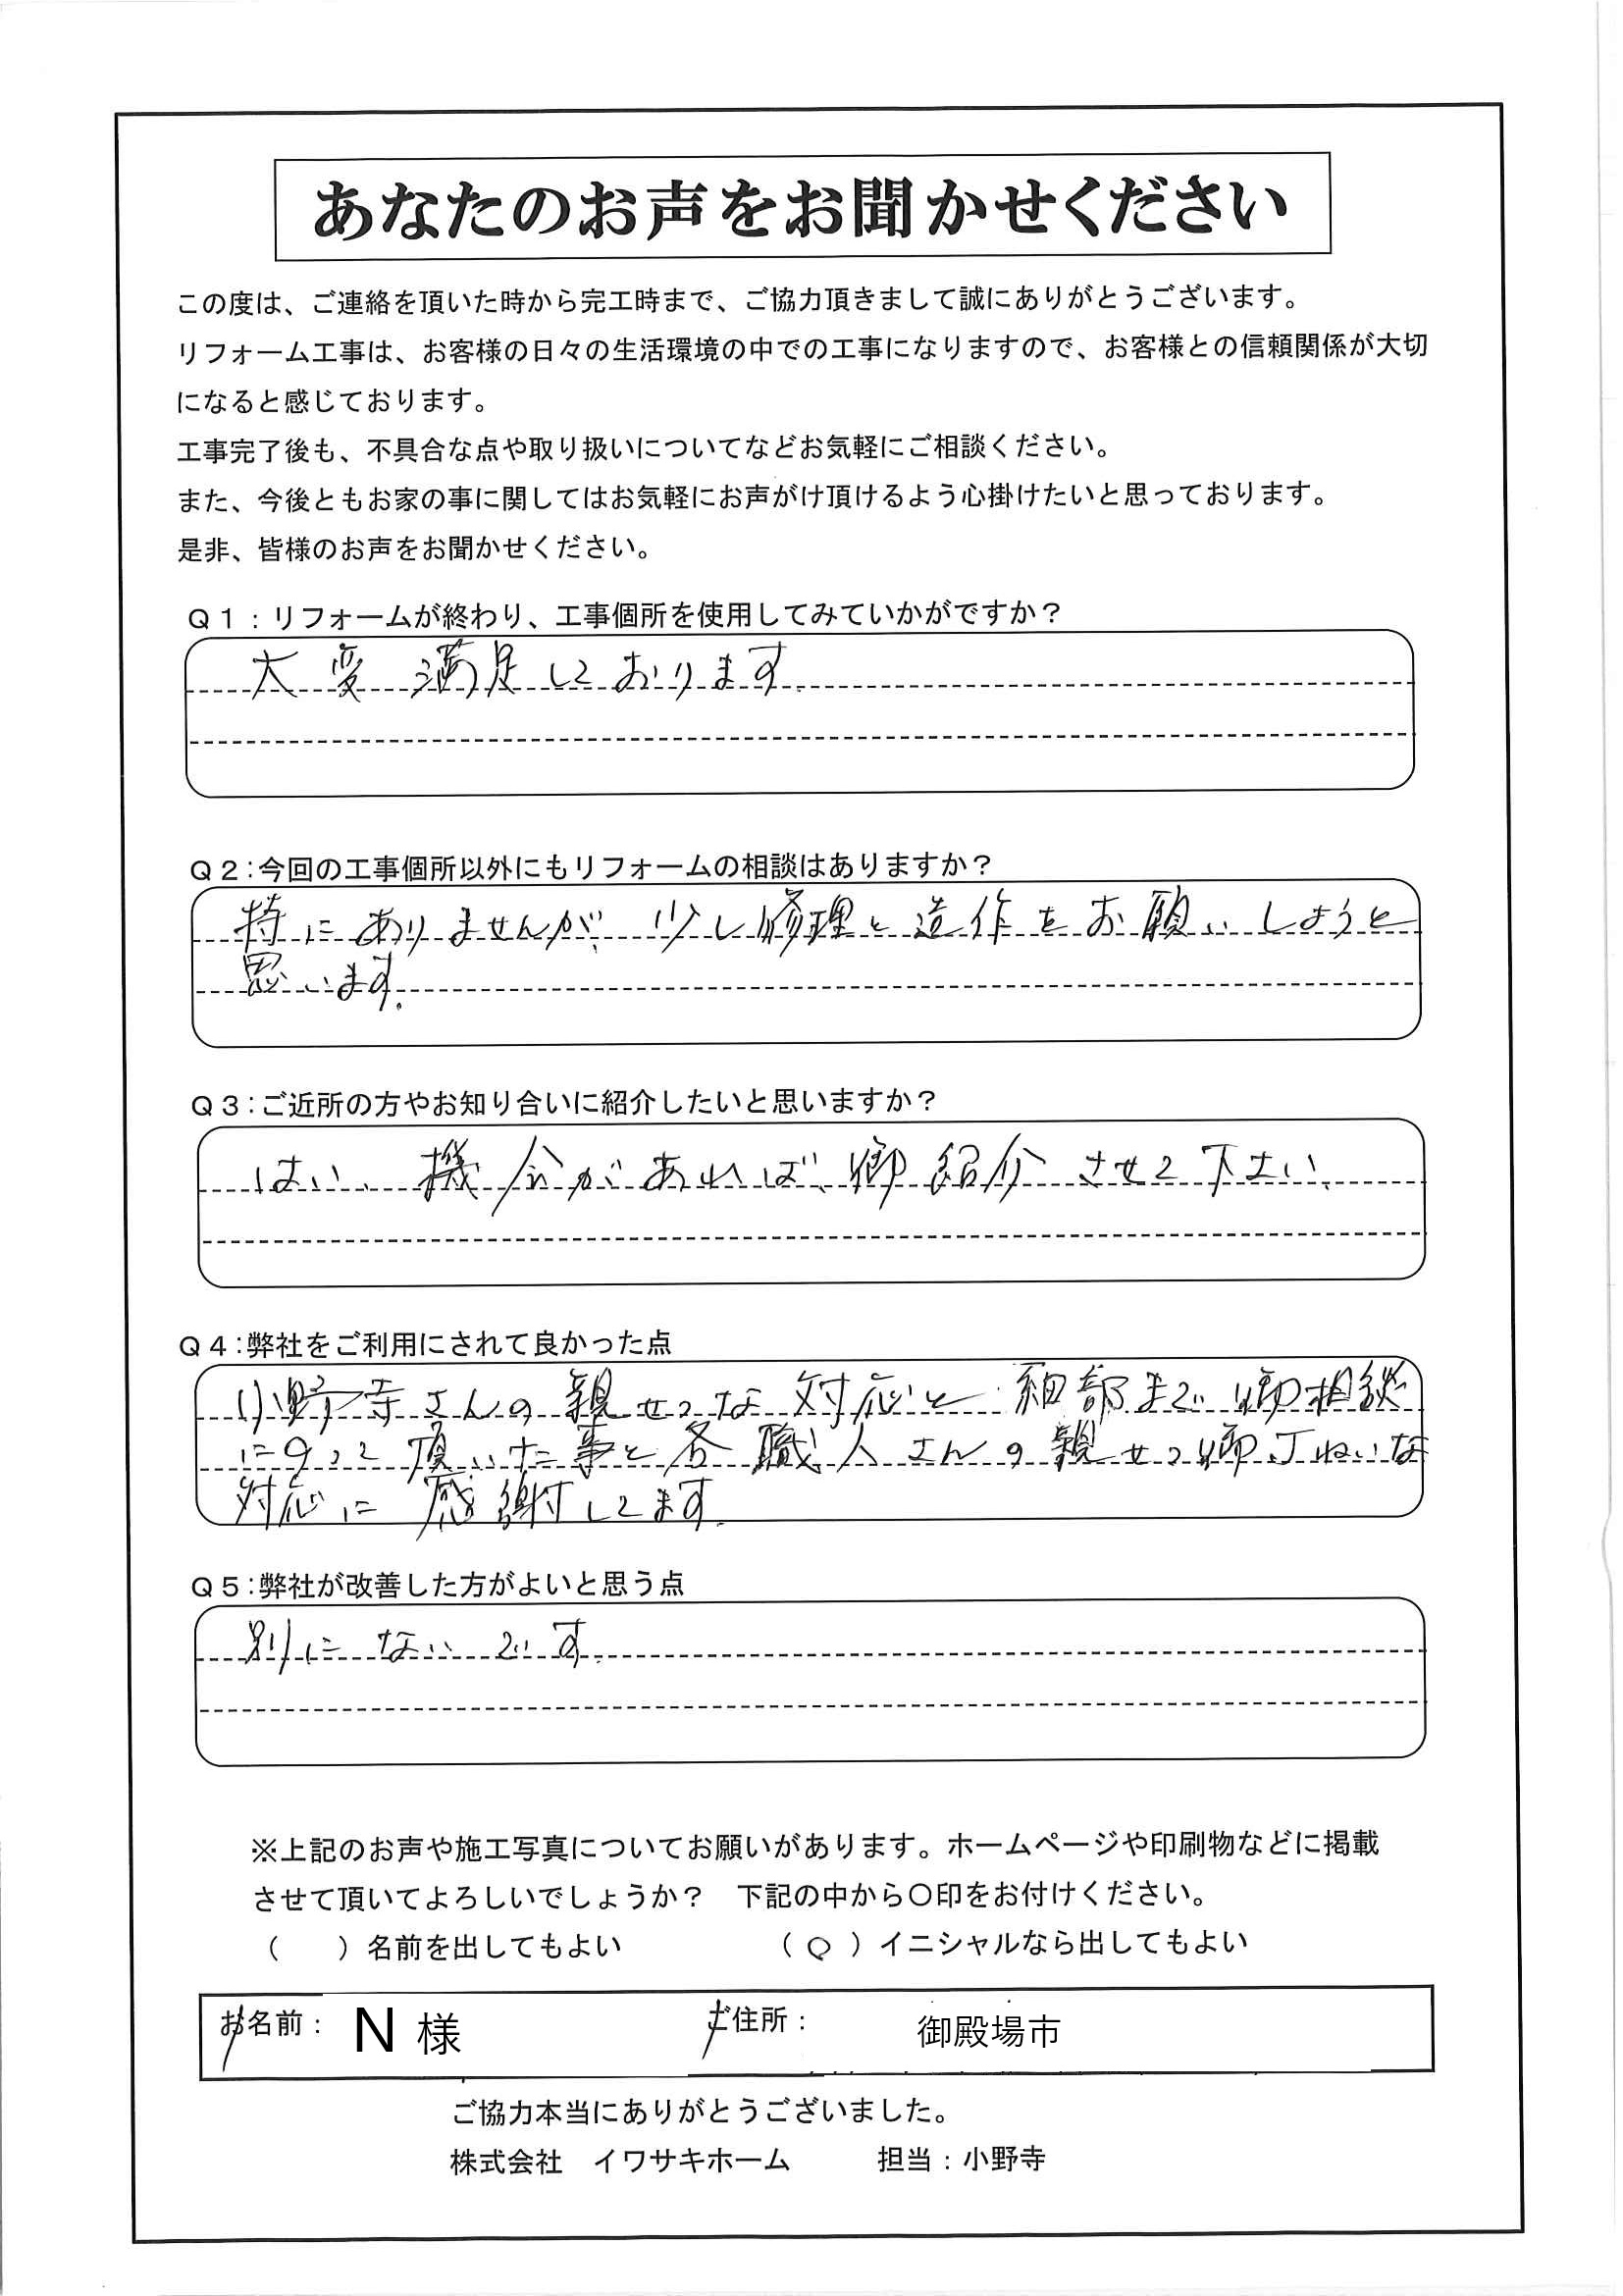 あなたのお声をお聞かせください
この度は、ご連絡を頂いた時から完工時まで、ご協力頂きまして誠にありがとうございます。
リフォーム工事は、お客様の日々の生活環境の中での工事になりますので、お客様との信頼関係が大切
になると感じております。
工事完了後も、不具合な点や取り扱いについてなどお気軽にご相談ください。
また、今後ともお家の事に関してはお気軽にお声がけ頂けるよう心掛けたいと思っております。
是非、皆様のお声をお聞かせください。
Q1:リフォームが終わり、工事個所を使用してみていかがですか?
大変満足しております
Q2:今回の工事個所以外にもリフォームの相談はありますか?
特にありませんが、少し修理と造作をお願いしようと
思います。
Q3:ご近所の方やお知り合いに紹介したいと思いますか?
はい、機会があれば、御紹介させて下さい、
Q4:弊社をご利用にされて良かった点
小野寺さんの親せつな対応と細部まで御相談
にのって頂いた事と各職人さんの親せつ御丁ねいな
対応に感謝してます。
Q5:弊社が改善した方がよいと思う点
別にないです。
※上記のお声や施工写真についてお願いがあります。ホームページや印刷物などに掲載
させて頂いてよろしいでしょうか? 下記の中から〇印をお付けください。
( )名前を出してもよい (○)イニシャルなら出してもよい
お名前: N 様 ご住所: 御殿場市
ご協力本当にありがとうございました。
株式会社 イワサキホーム 担当:小野寺